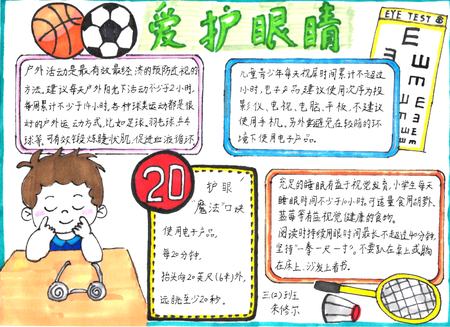 爱护眼睛
EYE TEST
户外活动是最有效最经济的预防近视的
方法,建议每天户外阳光下活动不少于2小时,
每周累计不少于14小时,各种球类运动都是很
好的户外运动方式,比如足球、羽毛球、乒乓
球等,可有效锻炼睫状肌,促进血液循环
儿童青少年每天视屏时间累计不超过
1小时,电子产品建议使用次序为投
影仪、电视、电脑、平板,不建议
使用手机,另外要避免在较暗的环
境下使用电子产品。
20
护眼
"魔法"口诀
使用电子产品,
每20分钟,
抬头向20英尺(6米)外,
远眺至少20秒。
充足的睡眠有益于视觉发育,小学生每天
睡眠时间不少于10小时,可适量食用胡萝卜、
蓝莓等有益视觉健康的食物。
阅读时持续用眼时间最长不超过40分钟,
坚持"一拳一尺一寸"。不要趴在桌上或躺
在床上、沙发上看书。
三(2)班
朱修尔